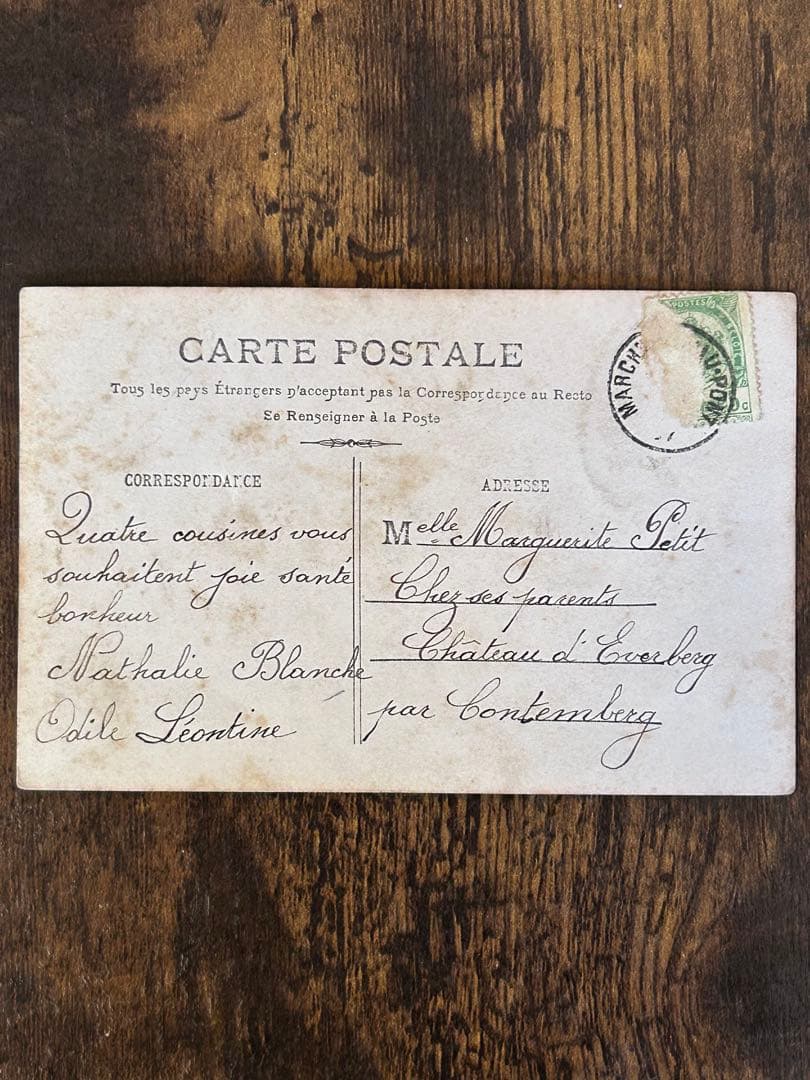 CARTE POSTALE
Tous les pays Étrangers n'acceptent pas la Correspondance au Recto
Se Renseigner à la Poste
CORRESPONDANCE
Quatre cousines vous
souhaitent joie santé
bonheur
Nathalie Blanche
Odile Léontine
ADRESSE
Melle Marguerite Petit
Chez ses parents
Château d'Everberg
par Contemberg
POSTES
MARCH AU-PO